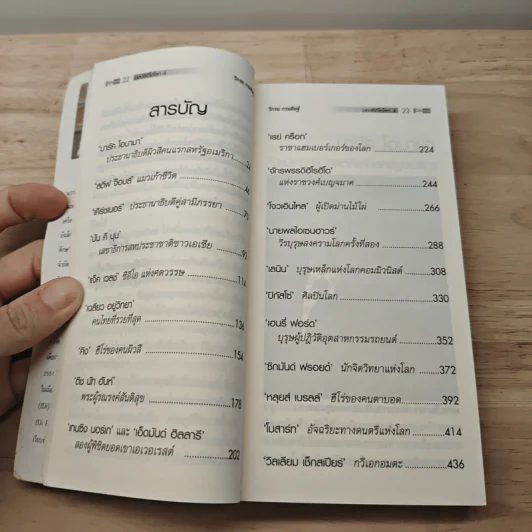 22
สารบัญ
'บารัค โอบามา'
ประธานาธิบดีผิวสีคนแรกสหรัฐอเมริกา
'สตีฟ จ็อบส์' แมวเก้าชีวิต
'เคิร์ชเนอร์' ประธานาธิบดีคู่สามีภรรยา
'บัน คี มุน'
เลขาธิการสหประชาชาติชาวเอเชีย 92
'แจ็ค เวลช์' ซีอีโอ แห่งศตวรรษ 114
'เฉลียว อยู่วิทยา'
คนไทยที่รวยที่สุด 136
'คิง' ฮีโร่ของคนผิวสี 154
'ติช นัท ฮันห์'
พระผู้รณรงค์สันติสุข 178
'เทนซิง นอร์เก' และ 'เอ็ดมันด์ ฮิลลารี'
สองผู้พิชิตยอดเขาเอเวอเรสต์ 202
23
'เรย์ คร็อก'
ราชาแฮมเบอร์เกอร์ของโลก 224
'จักรพรรดิฮิโรฮิโต'
แห่งราชวงศ์เบญจมาศ 244
'โจวเอินไหล' ผู้เปิดม่านไม้ไผ่ 266
'นายพลไอเซนฮาวร์'
วีรบุรุษสงครามโลกครั้งที่สอง 288
'เลนิน' บุรุษเหล็กแห่งโลกคอมมิวนิสต์ 308
'ปิกัสโซ' ศิลปินโลก 330
'เฮนรี่ ฟอร์ด'
บุรุษผู้ปฏิวัติอุตสาหกรรมรถยนต์ 352
'ซิกมันด์ ฟรอยด์' นักจิตวิทยาแห่งโลก 372
'หลุยส์ เบรลล์' ฮีโร่ของคนตาบอด 392
'โมสาร์ท' อัจฉริยะทางดนตรีแห่งโลก 414
'วิลเลียม เช็กสเปียร์' กวีเอกอมตะ 436